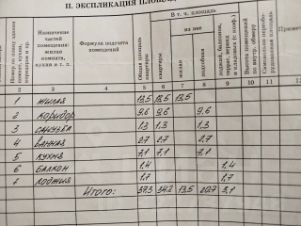 II. ЭКСПЛИКАЦИЯ ПЛОЩА
В т. ч. площадь
из нее
Назначение частей помещения: жилая комната, кухня и т. п.
Формула подсчета помещений
Общая площадь квартиры
квартиры
жилая
подсобная
лоджий, балконов,
Высота помещений по внутр. обмеру
1 2 3 4 5 6 7 8 9 10 11
1 жилая 13,5 13,5 13,5
2 коридор 9,6 9,6 9,6
3 санузел 1,3 1,3 1,3
4 ванная 2,7 2,7 2,7
5 кухня 7,1 7,1 7,1
6 балкон 1,4 1,4
7 лоджия 1,7 1,7
Итого: 37,3 34,2 13,5 20,7 3,1